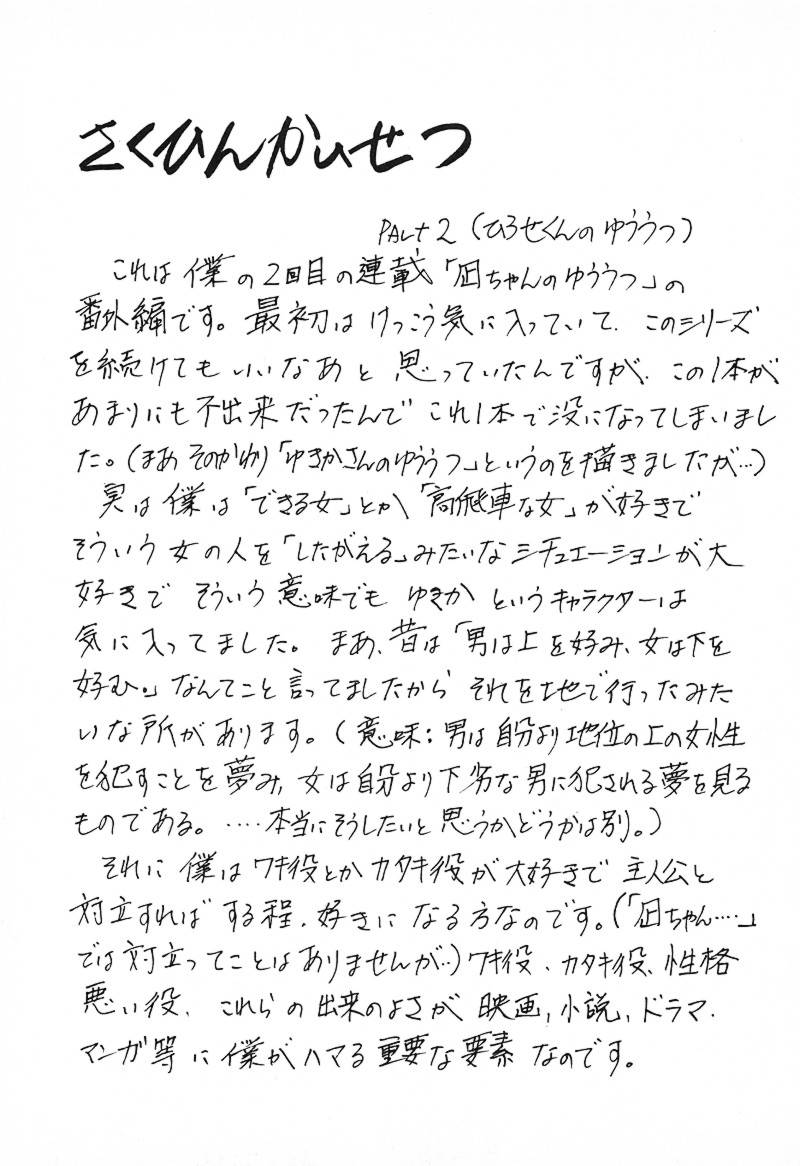 さくひんかいせつ
PArt 2（ひろせくんのゆううつ）
これは僕の2回目の連載「凪ちゃんのゆううつ」の
番外編です。最初はけっこう気に入っていて、このシリーズ
を続けてもいいなあと思っていたんですが、この1本が
あまりにも不出来だったんでこれ1本で没になってしまいまし
た。（まあそのかわり「ゆきかさんのゆううつ」というのを描きましたが…）
実は僕は「できる女」とか「高飛車な女」が好きで
そういう女の人を「したがえる」みたいなシチュエーションが大
好きでそういう意味でもゆきかというキャラクターは
気に入ってました。まあ、昔は「男は上を好み、女は下を
好む。」なんてこと言ってましたからそれを地で行ったみた
いな所があります。（意味：男は自分より地位の上の女性
を犯すことを夢み、女は自分より下劣な男に犯される夢を見る
ものである。‥‥本当にそうしたいと思うかどうかは別。）
それに僕はワキ役とかカタキ役が大好きで主人公と
対立すればする程、好きになる方なのです。（「凪ちゃん‥‥」
では対立ってことはありませんが…）ワキ役、カタキ役、性格
悪い役、これらの出来のよさが映画、小説、ドラマ、
マンガ等に僕がハマる重要な要素なのです。